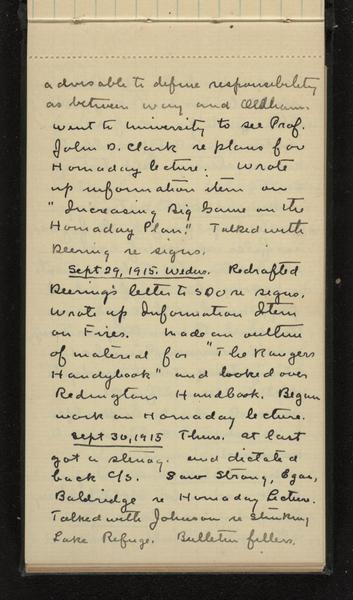 advisable to define responsibility
as between way and Oldham.
Went to University to see Prof.
John D. Clark re plans for
Hornaday lecture. Wrote
up information item on
"Increasing Big Game on the
Hornaday Plan." Talked with
Deering re signs.
Sept 29, 1915. Wednes. Redrafted
Deering's letter to SDO re signs.
Wrote up Information Item
on Fires. Made an outline
of material for "The Rangers
Handybook" and looked over
Redingtons Handbook. Began
work on Hornaday lecture.
Sept 30, 1915 Thurs. At last
got a stenog. and dictated
back C/S. Saw Strong, Egan,
Baldridge re Hornaday Lecture.
Talked with Johnson re Stinking
Lake Refuge. Bulletin fillers.